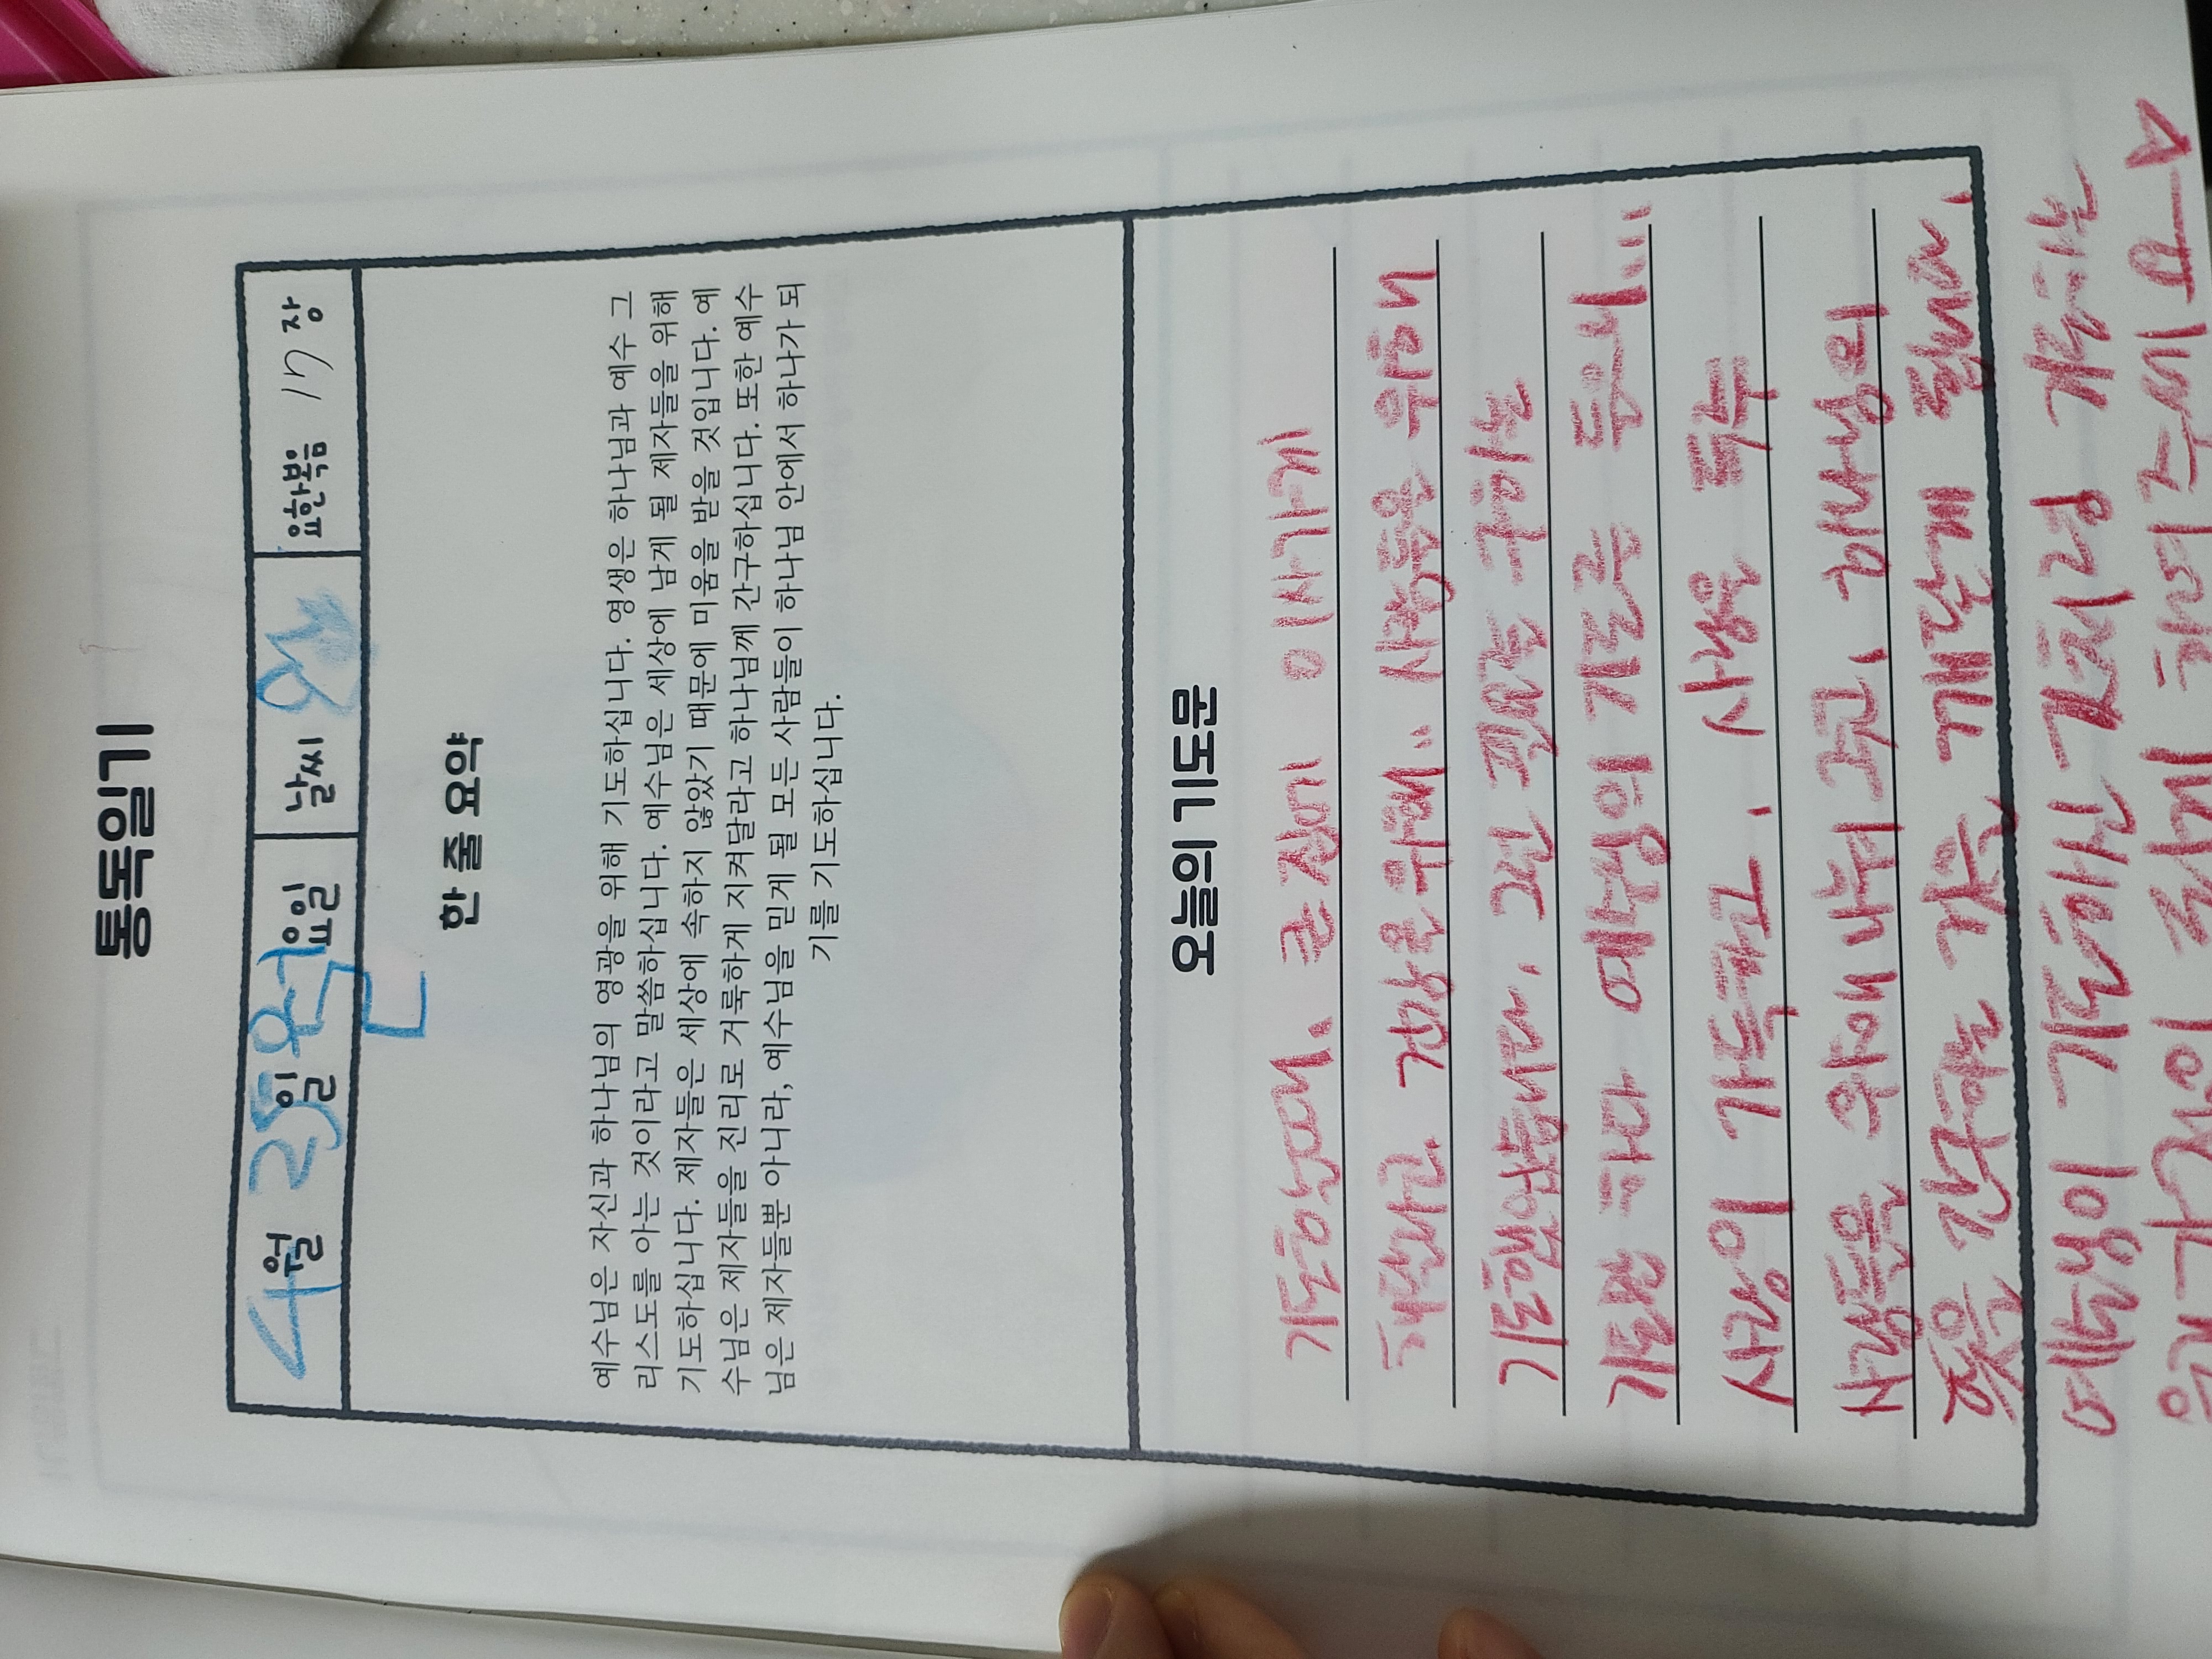 통독일기
4월 25일 월요일 날씨 요한복음 17장
한 줄 요약
예수님은 자신과 하나님의 영광을 위해 기도하십니다. 영생은 하나님과 예수 그
리스도를 아는 것이라고 말씀하십니다. 예수님은 세상에 남게 될 제자들을 위해
기도하십니다. 제자들은 세상에 속하지 않았기 때문에 미움을 받을 것입니다. 예
수님은 제자들을 진리로 거룩하게 지켜달라고 하나님께 간구하십니다. 또한 예수
님은 제자들뿐 아니라, 예수님을 믿게 될 모든 사람들이 하나님 안에서 하나가 되
기를 기도하십니다.
오늘의 기도문
기도하는때, 큰 집에 이사가게
해달라고, 건강을 위해.. 사람들을 위해
기도했었습니다. 그런 필요를 구하는
기도와 하나 예수님의 기도를 통해...
사랑이 가득하고, 사랑을
사람들을 위해 나눠 주고, 하나님의
뜻을 간구하는 것을 깨닫게 됩니다.
예수님이 기도하신 것처럼 기도하는
우리 가정이 되게 하여 주세요